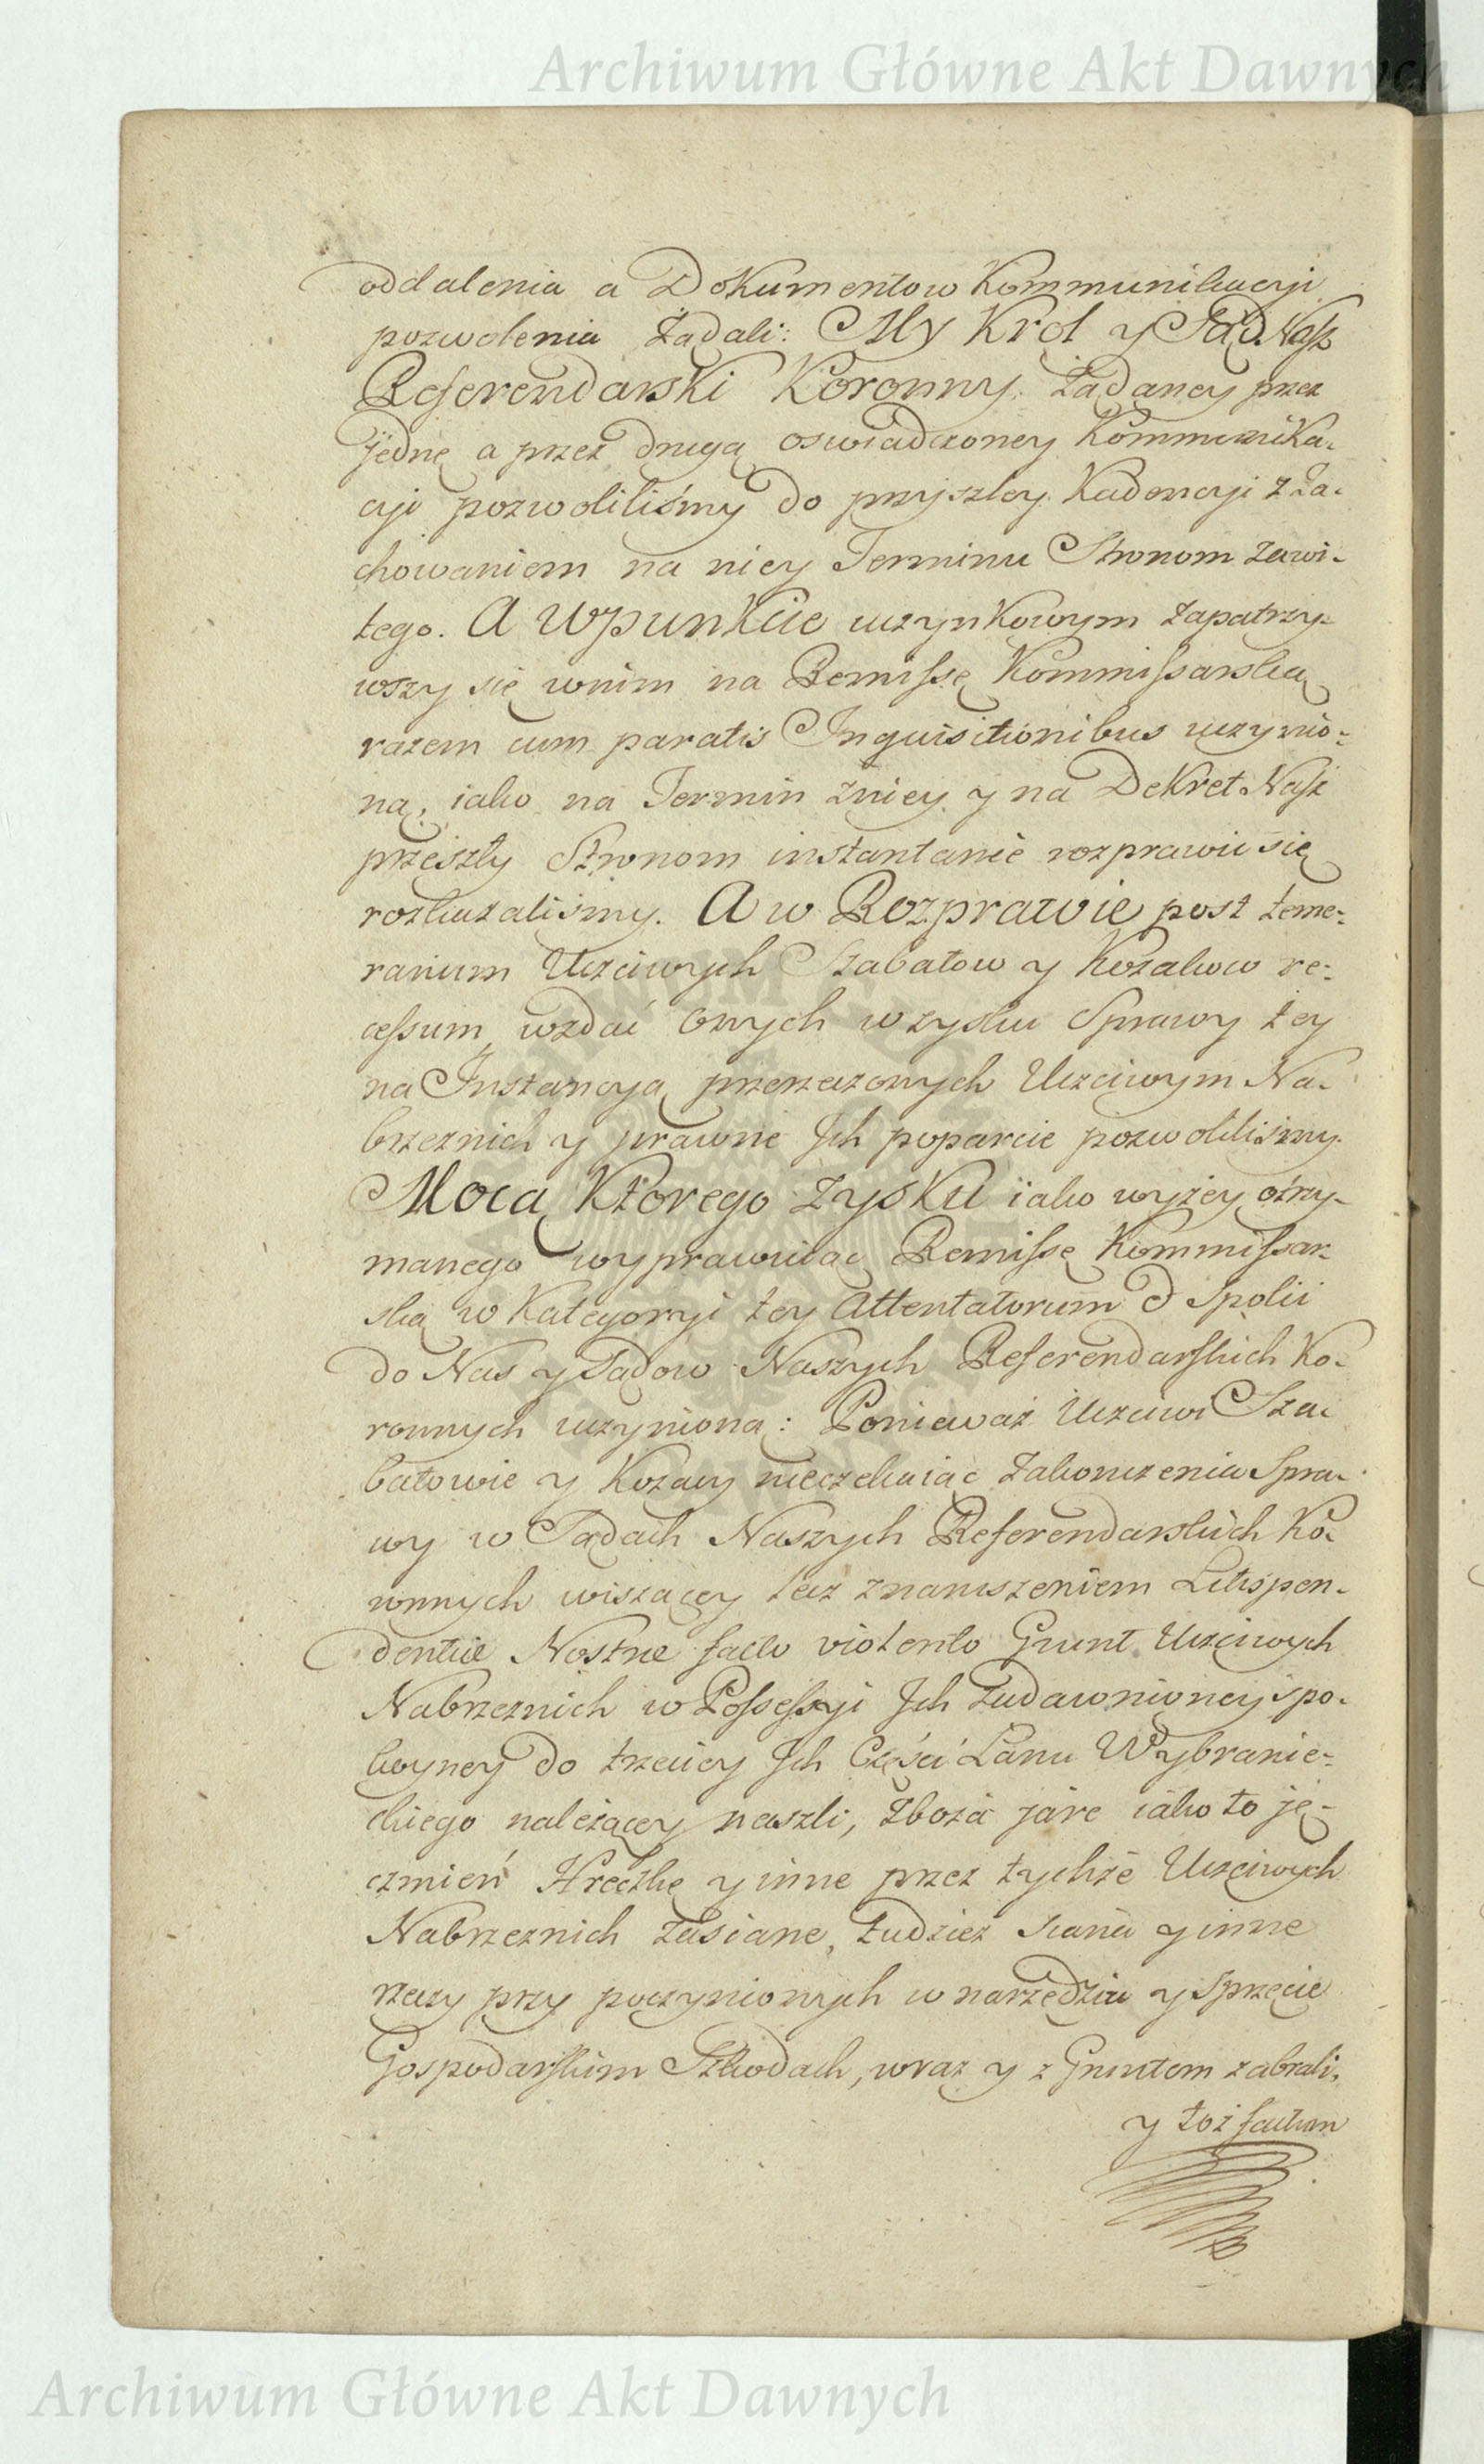 Archiwum Główne Akt Dawnych
oddalenia a Dokumentow Kommunikacyi
pozwolenia żądali: My Krol y Sąd Nasz
Referendarski Koronny żądaney przez
jednę a przez drugą oswiadczoney Kommunika-
cyi pozwoliliśmy do przyszłey Kadencyi z za-
chowaniem na niey Terminu Stronom zawi-
tego. A w punkcie uczynkowym zapatrzy-
wszy się w nim na Remissę Kommissarską
razem cum paratis Inquisitionibus uczynio-
ną, iako na Termin z niey y na Dekret Nasz
przeszły Stronom instantanie rozprawić się
rozkazaliśmy. A w Rozprawie post teme-
rarium Uczciwych Szabatow y Kozakow re-
cessum, wzdać onych w zysku Sprawy tey
na Instancyą przerzeczonych Uczciwym Na-
brzeznich y prawne Ich poparcie pozwoliliśmy.
Mocą Ktorego zysku iako wyżey otrzy-
manego wyprawuiąc Remissę Kommissar-
ską w Kategoryi tey Attentatorum & Spolii
do Nas y Sądow Naszych Referendarskich Ko-
ronnych uczynioną: Ponieważ Uczciwi Sza-
batowie y Kozacy nieczekaiąc zakonczenia Spra-
wy w Sądach Naszych Referendarskich Ko-
ronnych wiszącey lecz z naruszeniem Litispen-
dentiae Nostrae facto violento Grunt Uczciwych
Nabrzeznich w Possessyi Ich zadawnioney spo-
koyney do trzeciey Ich Części Łanu Wybranie-
ckiego należącey naszli, zboża jare iako to ję-
czmień Hreczkę y inne przez tychże Uczciwych
Nabrzeznich zasiane, tudzież siana y inne
rzeczy przy poczynionych w narzędziu y sprzęcie
Gospodarskim Szkodach, wraz y z Gruntem zabrali,
y toż factum
Archiwum Główne Akt Dawnych